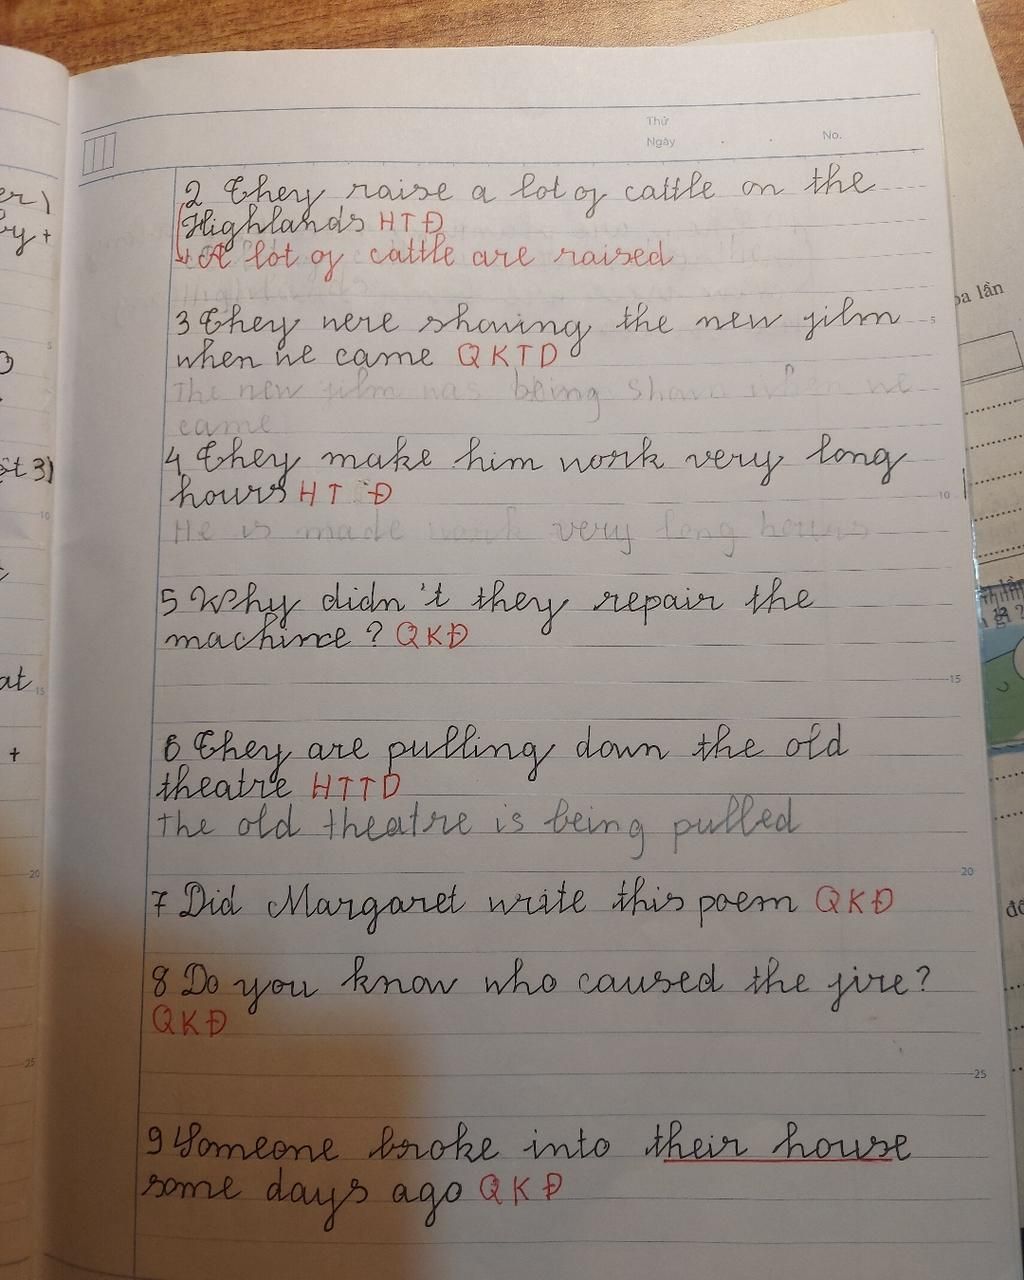 Thứ
Ngày . . No.
2 They raise a lot of cattle on the
Highlands HTĐ
A lot of cattle are raised
3 They were showing the new film
when we came QKTD
The new film was being shown when we
came
4 They make him work very long
hours HTĐ
He is made work very long hours
5 Why didn't they repair the
machine? QKĐ
6 They are pulling down the old
theatre HTTD
The old theatre is being pulled
7 Did Margaret write this poem QKĐ
8 Do you know who caused the fire?
QKĐ
9 Someone broke into their house
some days ago QKĐ
5
10
15
20
25
er)
by +
5
10
at
15
+
20
25
oa lần